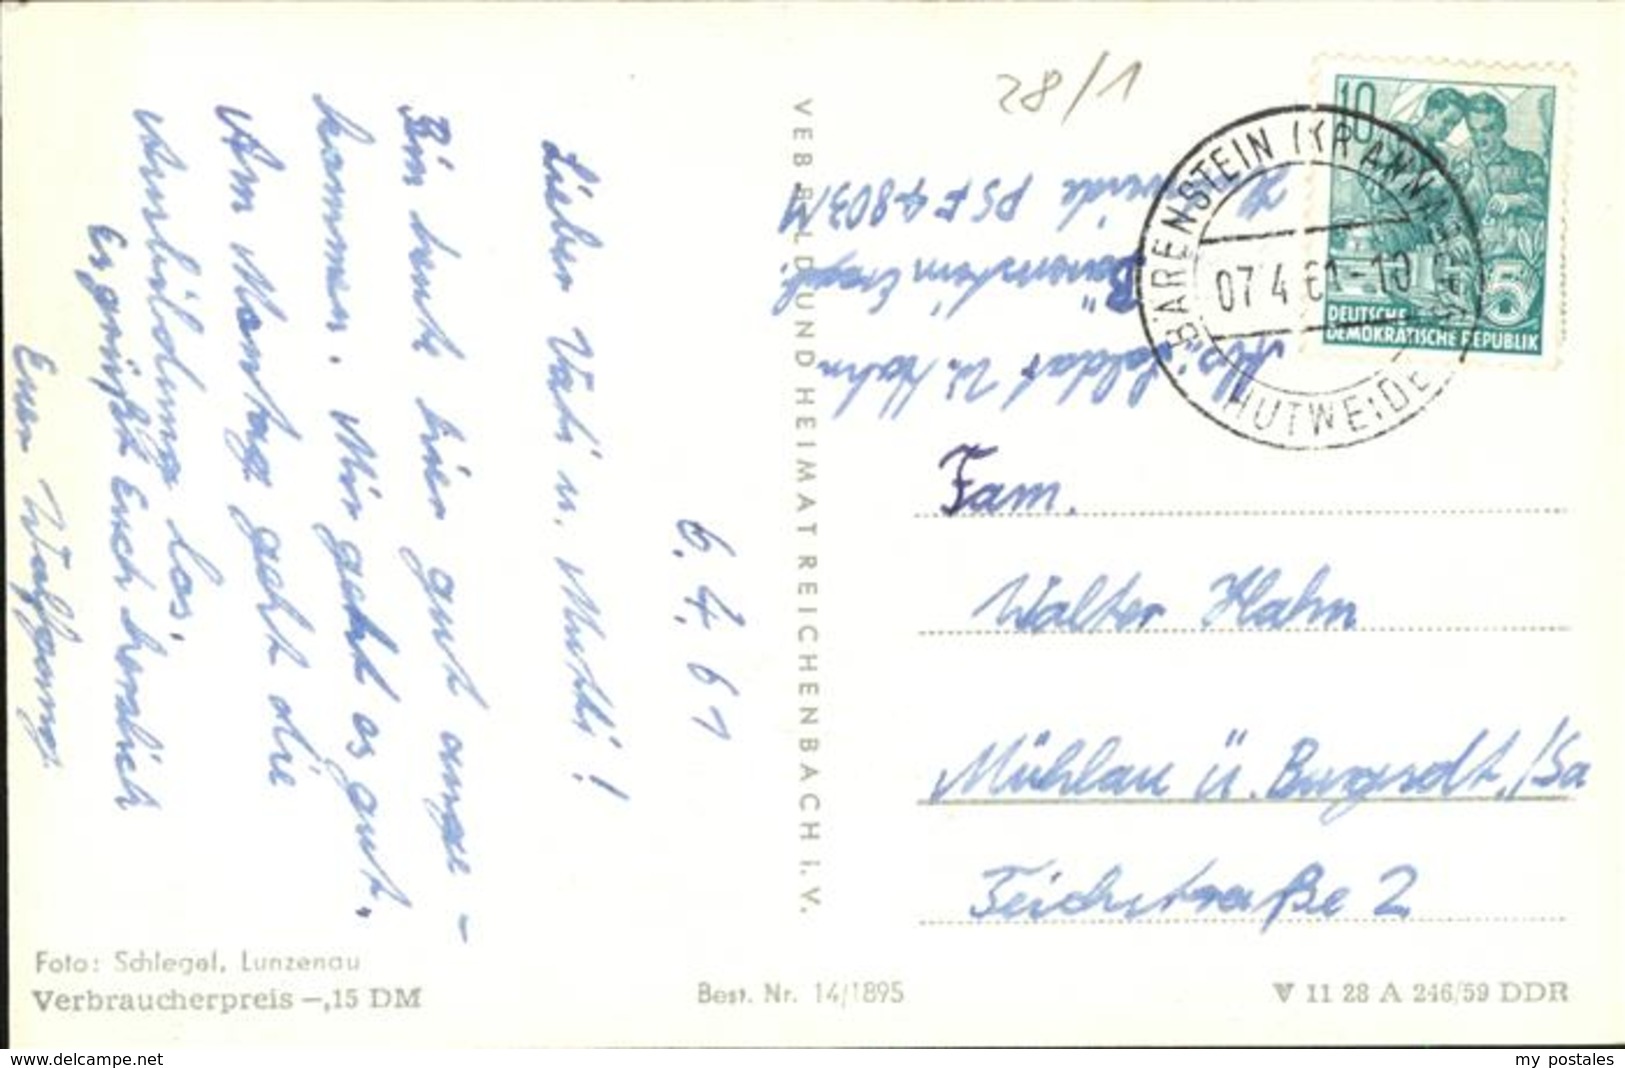 6. 4. 61
Lieber Vati u. Mutti!
Bin heute hier gut ange-
kommen. Mir geht es gut.
Am Montag geht die
Ausbildung los.
Es grüßt Euch herzlich
Euer Wolfgang.
Foto: Schlegel, Lunzenau
Verbraucherpreis —,15 DM
VEB BILD UND HEIMAT REICHENBACH I. V.
Best. Nr. 14/1895
28/1
Abs. Soldat W. Hahn
Bärenstein Erzgeb.
PSF 4803/M
10
5
DEUTSCHE
DEMOKRATISCHE REPUBLIK
BÄRENSTEIN (KR ANNABERG)
07.4.61-10
HUTWEIDE
Fam.
Walter Hahn
Mühlau ü. Burgstdt./Sa
Teichstraße 2
V 11 28 A 246/59 DDR
https://www.ansichtskarten-center.de/
my postales